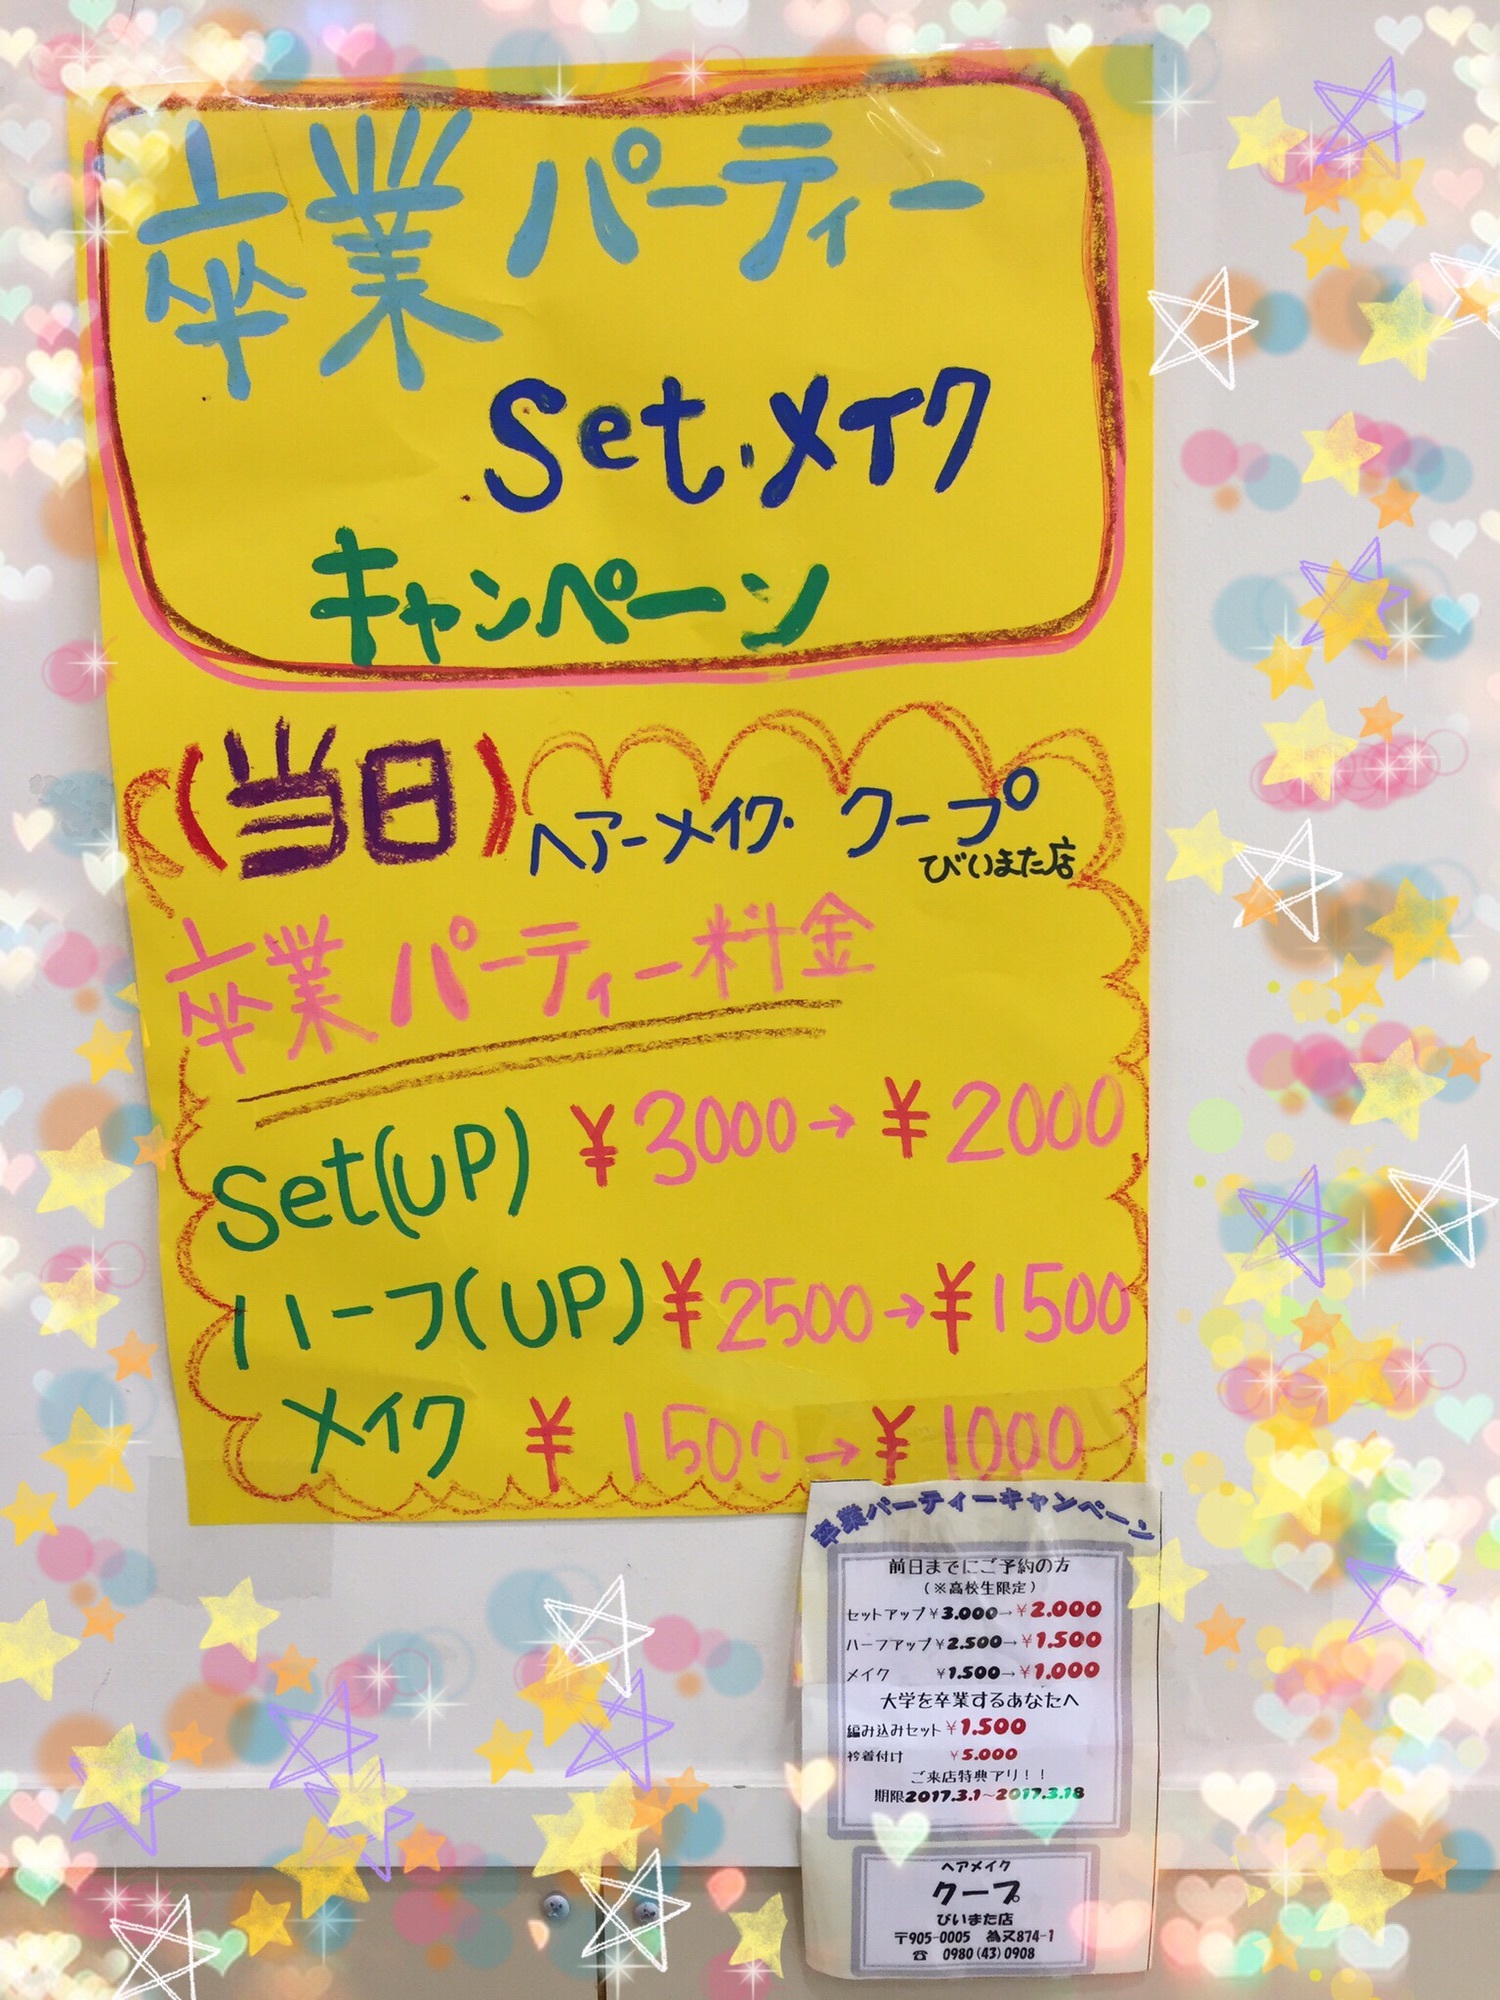 卒業パーティー
Set・メイク
キャンペーン
(当日)
ヘアーメイク・クープ
びいまた店
卒業パーティー料金
Set(UP) ¥3000→¥2000
ハーフ(UP) ¥2500→¥1500
メイク ¥1500→¥1000
卒業パーティーキャンペーン
前日までにご予約の方
(※高校生限定)
セットアップ¥3.000→¥2.000
ハーフアップ¥2.500→¥1.500
メイク ¥1.500→¥1.000
大学を卒業するあなたへ
編み込みセット¥1.500
袴着付け ¥5.000
ご来店特典アリ!!
期限2017.3.1~2017.3.18
ヘアメイク
クープ
びいまた店
〒905-0005 為又874-1
☎ 0980(43)0908